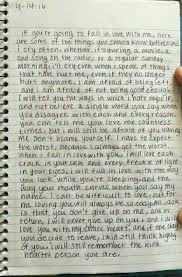 4-14-16
if you're going to fall in love with me, here
are some things you should know beforehand
I cry often, whether it's during a movie, a
sad song on the radio, or a regular Sunday
morning. I'll cry even when I speak of things
that have hurt me, even if they no longer
hurt anymore. I am afraid of being left
and I am afraid of not being good enough.
I will tell you the ways in which I hate myself,
and not believe a single word you say when
you disagree with each and every reason.
you can tell me you love me countless
times, but I will still be afraid of you leaving
me. Don't blame yourself, I have to expect
the worst, because I always get the worst.
When I fall in love with you, I will love each
crack in your skin and every freckle of light
in your eyes, I will fall in love with the way
you look while you're sleeping, and the
way your mouth curves when you say my
name. I can be difficult to love, but for
me, loving you will always be so easy. All I ask
is that you don't give up on me, and in
return, I will never give up on you. and I will
love you with my entire heart, and if one day
you decide to leave, I will still think highly
of you. I will still remember the kind
hearted person you are.